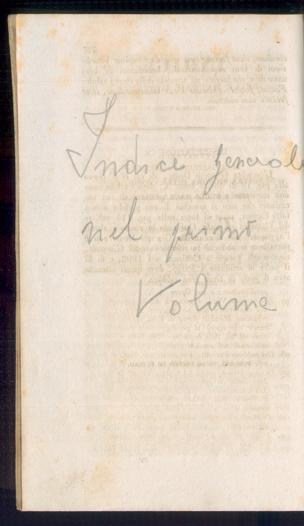 Indice generale
nel primo
Volume